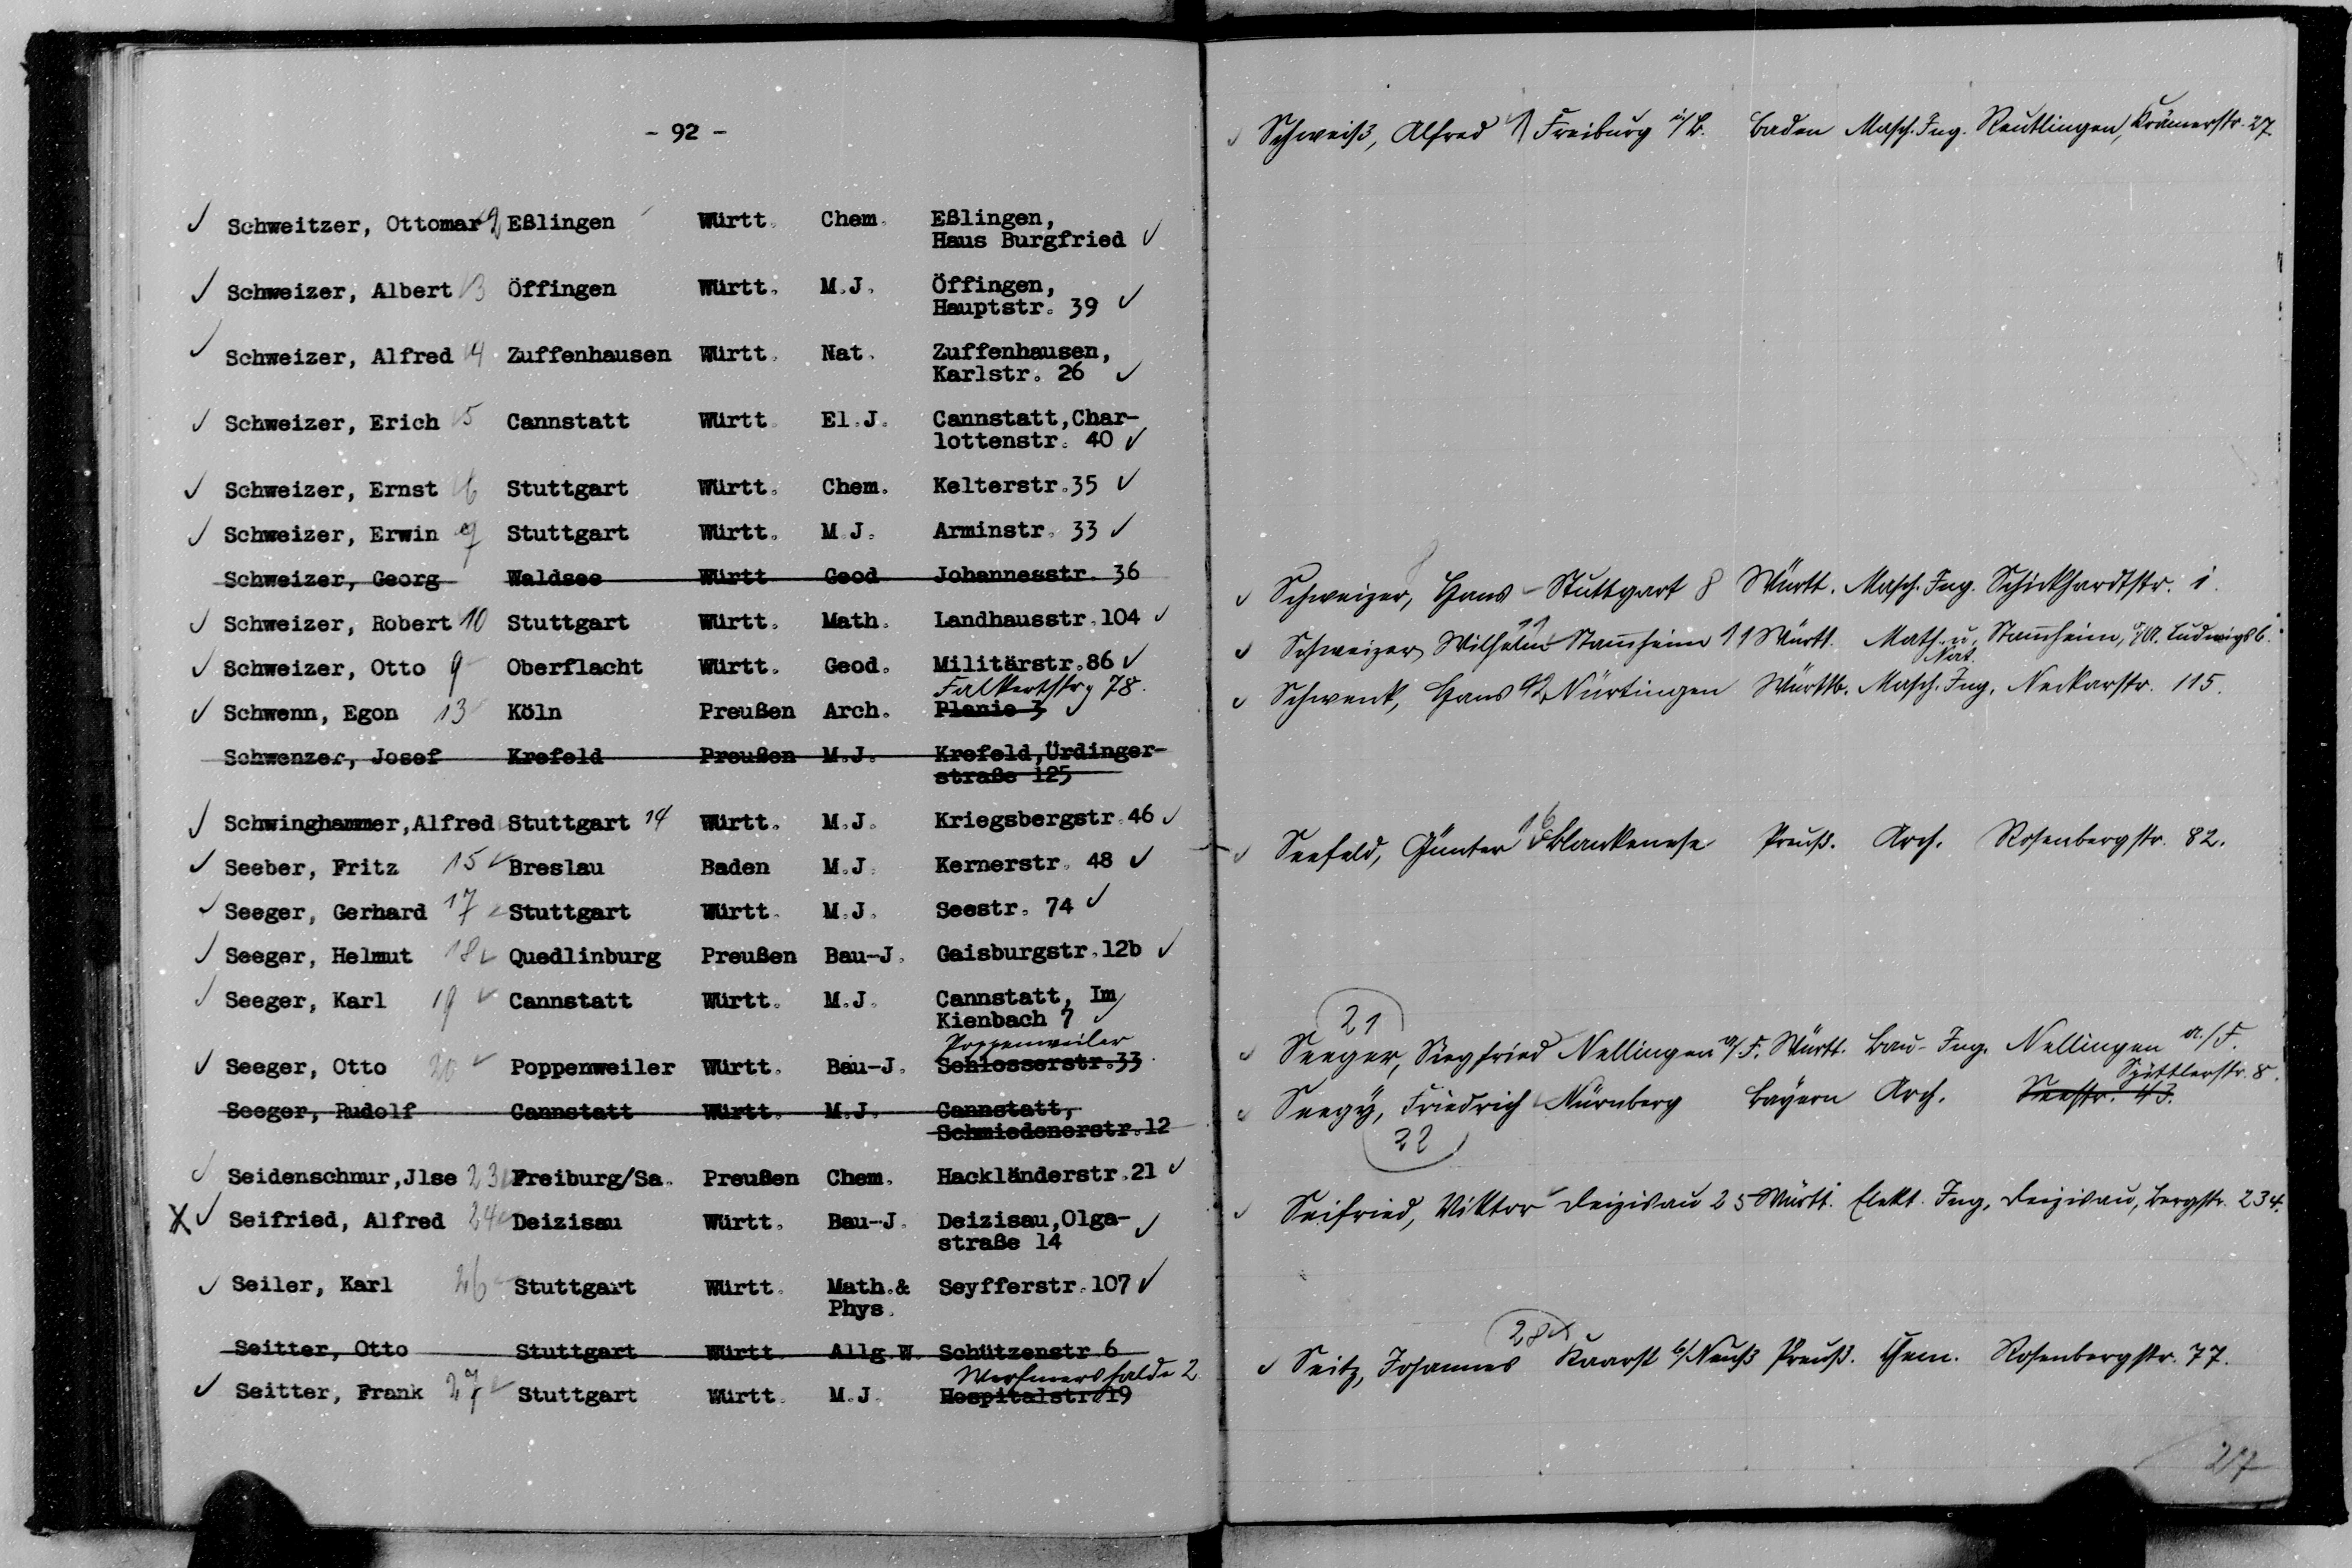 - 92 -
✓ Schweitzer, Ottomar 2 Eßlingen Württ. Chem. Eßlingen,
Haus Burgfried ✓
✓ Schweizer, Albert 3 Öffingen Württ. M.J. Öffingen,
Hauptstr. 39 ✓
✓ Schweizer, Alfred 4 Zuffenhausen Württ. Nat. Zuffenhausen,
Karlstr. 26 ✓
✓ Schweizer, Erich 5 Cannstatt Württ. El.J. Cannstatt,Char-
lottenstr. 40 ✓
✓ Schweizer, Ernst 6 Stuttgart Württ. Chem. Kelterstr.35 ✓
✓ Schweizer, Erwin 7 Stuttgart Württ. M.J. Arminstr. 33 ✓
Schweizer, Georg Waldsee Württ Geod Johannesstr. 36
✓ Schweizer, Robert 10 Stuttgart Württ. Math. Landhausstr.104 ✓
✓ Schweizer, Otto 9 Oberflacht Württ. Geod. Militärstr.86 ✓
Falkertstr. 78.
✓ Schwenn, Egon 13 Köln Preußen Arch. Planie 3 ✓
Schwenzer, Josef Krefeld Preußen M.J. Krefeld,Ürdinger-
straße 125
✓ Schwinghammer,Alfred Stuttgart 14 Württ. M.J. Kriegsbergstr.46 ✓
✓ Seeber, Fritz 15 ✓ Breslau Baden M.J. Kernerstr. 48 ✓
✓ Seeger, Gerhard 17 ✓ Stuttgart Württ. M.J. Seestr. 74 ✓
✓ Seeger, Helmut 18 ✓ Quedlinburg Preußen Bau-J. Gaisburgstr.12b ✓
✓ Seeger, Karl 19 ✓ Cannstatt Württ. M.J. Cannstatt, Im
Kienbach 7 ✓
Poppenweiler
✓ Seeger, Otto 20 ✓ Poppenweiler Württ. Bau-J. Schlosserstr.33
Seeger, Rudolf Cannstatt Württ. M.J. Cannstatt,
Schmiedenerstr.12
✓ Seidenschnur,Jlse 23 Freiburg/Sa. Preußen Chem. Hackländerstr.21 ✓
X ✓ Seifried, Alfred 24 Deizisau Württ. Bau-J. Deizisau,Olga-
straße 14 ✓
✓ Seiler, Karl 26 Stuttgart Württ. Math.& Seyfferstr.107 ✓
Phys.
Seitter, Otto Stuttgart Württ Allg.W. Schützenstr.6
Werfmershalde 2
✓ Seitter, Frank 27 ✓ Stuttgart Württ. M.J. Hospitalstr.19
✓ Schweiß, Alfred 1 Freiburg i/B. Baden Masch. Ing. Reutlingen, Krämerstr. 27
✓ Schweizer, Hans Stuttgart 8 Württ. Masch. Ing. Schickhardtstr. 1.
✓ Schweizer, Wilhelm Stamheim 11 Württ. Math. u. Stamheim, O/A. Ludwigsb.
Nat.
✓ Schwenk, Hans 12 Nürtingen Württb. Masch. Ing. Neckarstr. 115.
✓ Seefeld, Günter 16 Blankenese Preuß. Arch. Rosenbergstr. 82.
21
✓ Seeger, Siegfried Nellingen a/F. Württ. Bau-Ing. Nellingen a./F.
Spittlerstr. 8.
✓ Seegy, Friedrich Nürnberg Bayern Arch. Seestr. 43.
22
✓ Seifried, Viktor Deizisau 25 Württ. Elekt. Ing. Deizisau, Bergstr. 234.
28
✓ Seitz, Johannes Kaarst b/Neuß Preuß. Chem. Rosenbergstr. 77.
27